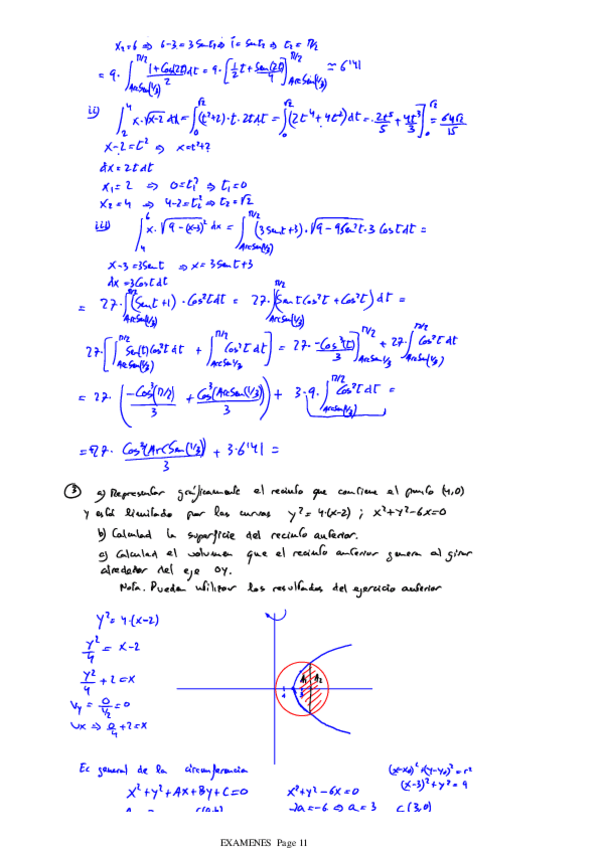 x₂=6 ⇒ 6-3=3Sent₂ ⇒ 1=Sent₂ ⇒ t₂=π/2
= 9·∫_{ArcSen(1/3)}^{π/2} (1+Cos(2t))/2 dt = 9·[1/2 t + Sen(2t)/4]_{ArcSen(1/3)}^{π/2} ≈ 6'41
ii) ∫_2^4 x·√(x-2) dx = ∫_0^{√2} (t²+2)·t·2t dt = ∫_0^{√2} (2t⁴+4t²) dt = 2t⁵/5 + 4t³/3 ]_0^{√2} = 64√2/15
x-2=t² ⇒ x=t²+2
dx=2t dt
x₁=2 ⇒ 0=t₁² ⇒ t₁=0
x₂=4 ⇒ 4-2=t₂² ⇒ t₂=√2
iii) ∫_4^6 x·√(9-(x-3)²) dx = ∫_{ArcSen(1/3)}^{π/2} (3Sent+3)·√(9-9Sen²t)·3Cost dt =
x-3=3Sent ⇒ x=3Sent+3
dx=3Cost dt
= 27·∫_{ArcSen(1/3)}^{π/2} (Sent+1)·Cos²t dt = 27·∫_{ArcSen(1/3)}^{π/2} (Sent Cos²t + Cos²t) dt =
27·[∫_{ArcSen(1/3)}^{π/2} Sen(t)Cos²t dt + ∫_{ArcSen(1/3)}^{π/2} Cos²t dt] = 27·-Cos³(t)/3 ]_{ArcSen1/3}^{π/2} + 27∫_{ArcSen(1/3)}^{π/2} Cos²t dt
= 27·(-Cos³(π/2)/3 + Cos³(ArcSen(1/3))/3) + 3·9·∫_{ArcSen(1/3)}^{π/2} Cos²t dt =
=27· Cos³(ArcSen(1/3))/3 + 3·6'41 =
③ a) Representar gráficamente el recinto que contiene al punto (4,0)
y está limitado por las curvas y²=4·(x-2) ; x²+y²-6x=0
b) Calculad la superficie del recinto anterior.
c) Calculad el volumen que el recinto anterior genera al girar
alrededor del eje OY.
Nota. Pueden utilizar los resultados del ejercicio anterior
y²=4·(x-2)
y²/4 = x-2
y²/4 + 2 = x
A₁ A₂
Ec general de la circunferencia
x²+y²+Ax+By+C=0
x²+y²-6x=0
(x-x₀)²+(y-y₀)²=r²
(x-3)²+y²=9
-2a=-6 ⇒ a=3 C(3,0)
EXAMENES Page 11